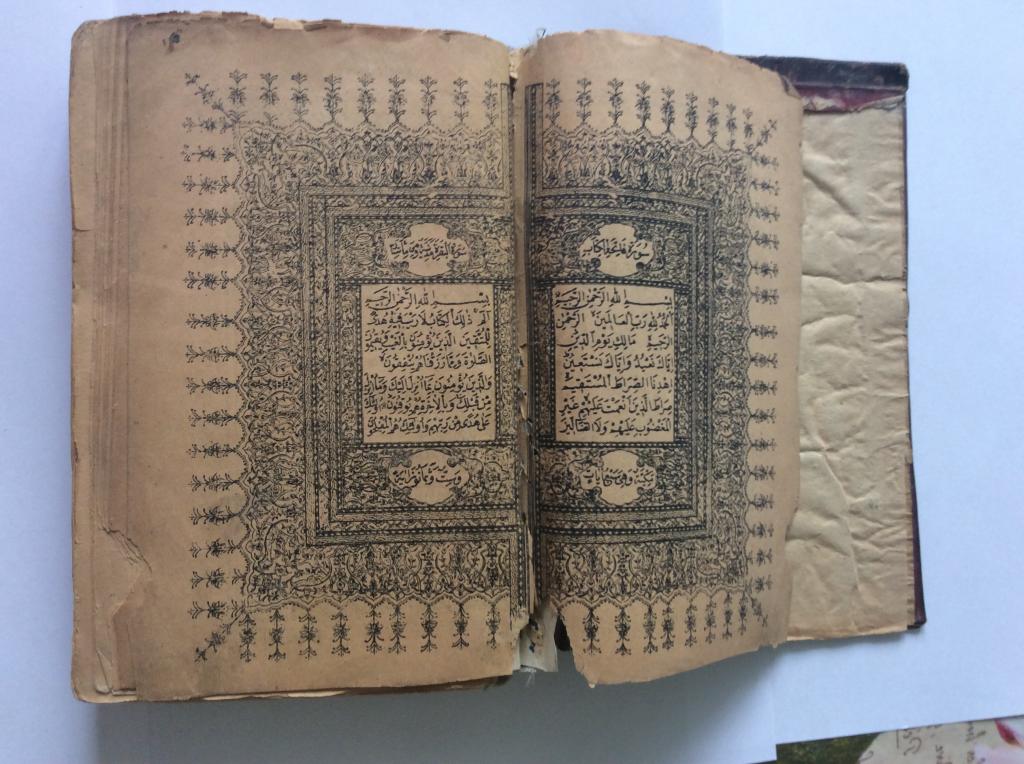 سورة فاتحة الكتاب
بسم الله الرحمن الرحيم
الحمد لله رب العالمين الرحمن
الرحيم مالك يوم الدين
اياك نعبد واياك نستعين
اهدنا الصراط المستقيم
صراط الذين انعمت عليهم غير
المغضوب عليهم ولا الضالين
مكية وهي سبع ايات
سورة البقرة مدنية وهي مائتا
بسم الله الرحمن الرحيم
الم ذلك الكتاب لا ريب فيه هدى
للمتقين الذين يؤمنون بالغيب ويقيمون
الصلوة ومما رزقناهم ينفقون
والذين يؤمنون بما انزل اليك وما انزل
من قبلك وبالاخرة هم يوقنون اولئك
على هدى من ربهم واولئك هم المفلحون
وست وثمانون اية